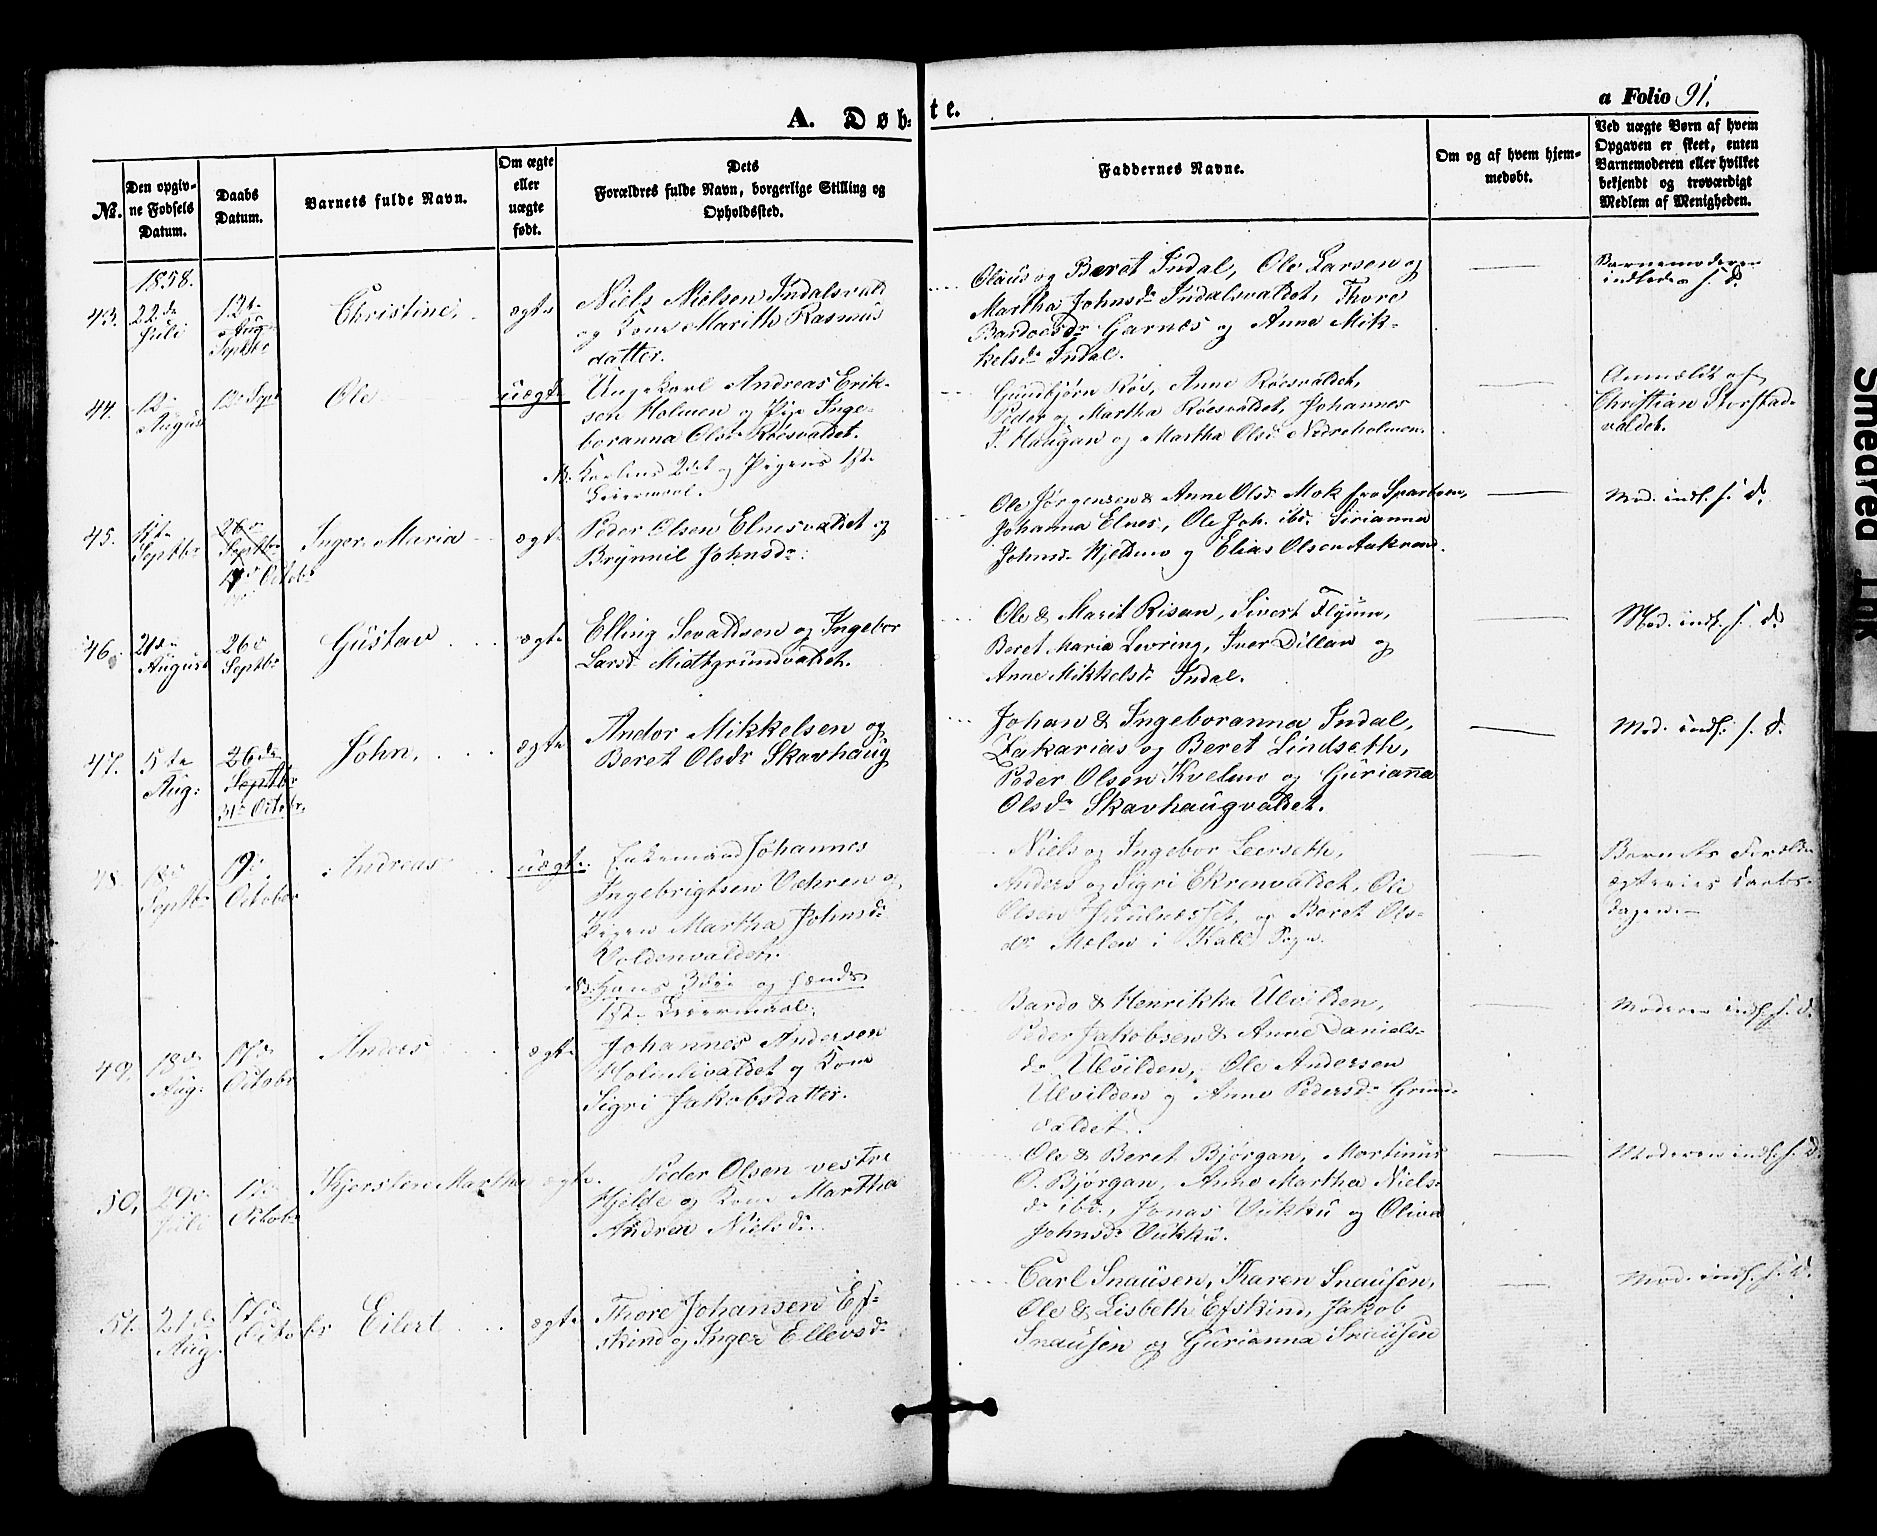 A. Døb-
te.
a Folio 91.
No.
Den opgiv-
ne Fødsels
Datum.
Daabs
Datum.
Barnets fulde Navn.
Om ægte
eller
uægte
født.
Dets
Forældres fulde Navn, borgerlige Stilling og
Opholdssted.
Faddernes Navne.
Om og af hvem hjem-
medøbt.
Ved uægte Børn af hvem
Opgaven er skeet, enten
Barnemoderen eller hvilket
bekjendt og troværdigt
Medlem af Menigheden.
1858.
43.
22de
Juli
12te
Aug
Septbr
Christine,
ægte
Niels Nielsen Indalsvald
og Kone Marith Rasmus
datter.
Olaus og Beret Indal, Ole Larsen og
Martha Johnsdr Indalsvaldet, Thore
Bardoesdr Garnæs og Anne Mik-
kelsdr Indal.
Barnemoderen
indleden f. d.
44.
12
August
12 Sept
Ole
uægte
Ungkarl Andreas Erik-
sen Holmen og Pige Inge-
boranna Olsdr Röesvaldet.
NB. Karlens 2det og Pigens 1ste
Leiermaal.
Gunbjørn Röe, Anne Röesvaldet,
Peder og Martha Röesvaldet, Johannes
J. Haugan og Martha Olsdr Nedreholmen.
Anmeldt af
Christian Storstad-
valdet.
45.
Septbr
26de
Septbr
Octobr
Inger Maria
ægte
Peder Olsen Elnesvaldet og
Brynnil Johnsdr:
Ole Jørgensen & Anne Olsdr Mok fra Sparboen,
Johanna Elnes, Ole Joh. ibd. Sirianna
Johnsdr Hjeldmo og Elias Olsen Aakran.
Mod. indl. f. d.
46.
21de
August
26de
Septbr
Gustav
ægte
Elling Sevaldsen og Ingebor
Larsdr Midtgrundvaldet.
Ole & Marit Risan, Sivert Flyum,
Beret Maria Levring, Iver Dillan og
Anne Mikkelsdr Indal.
Mod. indl. f. d.
47.
5te
Aug:
26de
Septbr
31te Octobr.
John,
ægte
Andor Mikkelsen og
Beret Olsdr Skavhaug
Johan & Ingeboranna Indal,
Zakarias og Beret Lindseth,
Peder Olsen Kvelmo og Gurianna
Olsdr Skavhaugvaldet.
Mod. indl. f. d.
48
18de
Septbr
19de
October
Andreas
uægte
Enkemand Johannes
Ingebrigtsen Væhren og
Pigen Martha Johnsdr
Voldenvaldet.
NB. Hans 3die og hendes
1ste Leiermaal.
Niels og Ingebor Leerseth,
Anders og Sigri Ekrenvaldet, Ole
Olsen Juulnæsset, og Beret Ols-
dr Molen i Kall Sogn.
Barnets Forældre
ægteviet Daabs-
dagen.-
49.
18de
Aug:
17de
Octobr
Anders
ægte
Johannes Andersen
Holmlivaldet og Kone
Sigri Jakobsdatter.
Bardo & Henrikka Ulvilden,
Peder Jakobsen & Anne Daniels-
dr Ulvilden, Ole Andersen
Ulvilden og Anne Pedersdr Grund-
valdet.
Moderen indl. f. d.
50.
29de
Juli
17de
Octobr
Kjersten Martha
ægte.
Peder Olsen vestre
Hjelde og Kone Martha
Andrea Nielsdr.
Ole & Beret Bjørgan, Mortinus
O. Bjørgan, Anne Martha Niels-
dr ibd., Jonas Vukku og Oliva
Johnsdr Vukku.
Moderen indl. f. d.
51.
21de
Aug.
17de
Octobr
Eilert
ægte
Thore Johansen Ef-
skin og Inger Ellevsdr
Carl Snausen, Karen Snausen,
Ole & Lisbeth Efskind, Jakob
Snausen og Gurianna Snausen
Mod. indl. f. d.
Smedred Ink